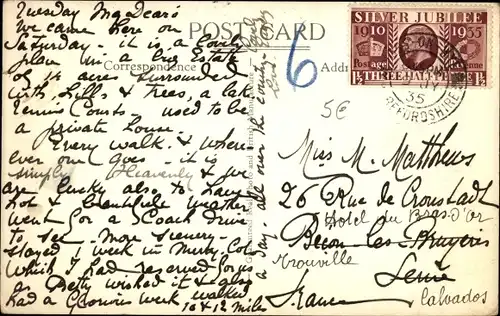 Tuesday My Dears
We came here on
Saturday - it is a Lovely
place in a Big Estate
of 14 acre surrounded
with, Hills & Trees, a lake
Tennis Courts used to be
a private House.
Every walk & when
ever one goes - it is
simply Heavenly & we
are lucky also to have
Hot & Beautiful weather
went for a Coach drive
to see - more scenery -
stayed 1 week in
which I had reserved
as Betty wished it & also
had a Glorious week walked
10 & 12 miles
a day - all over the country
POST CARD
Correspondence
Addr
6
5€
SILVER JUBILEE
1910 1935
Postage
THREE HALFPENCE
1½ 1½
35
RDSHIRE
Miss M. Matthews
26 Rue de Cronstadt
Hotel du Bras-D'or
Becon-les-Bruyeres
Trouville
Seine
France
Calvados